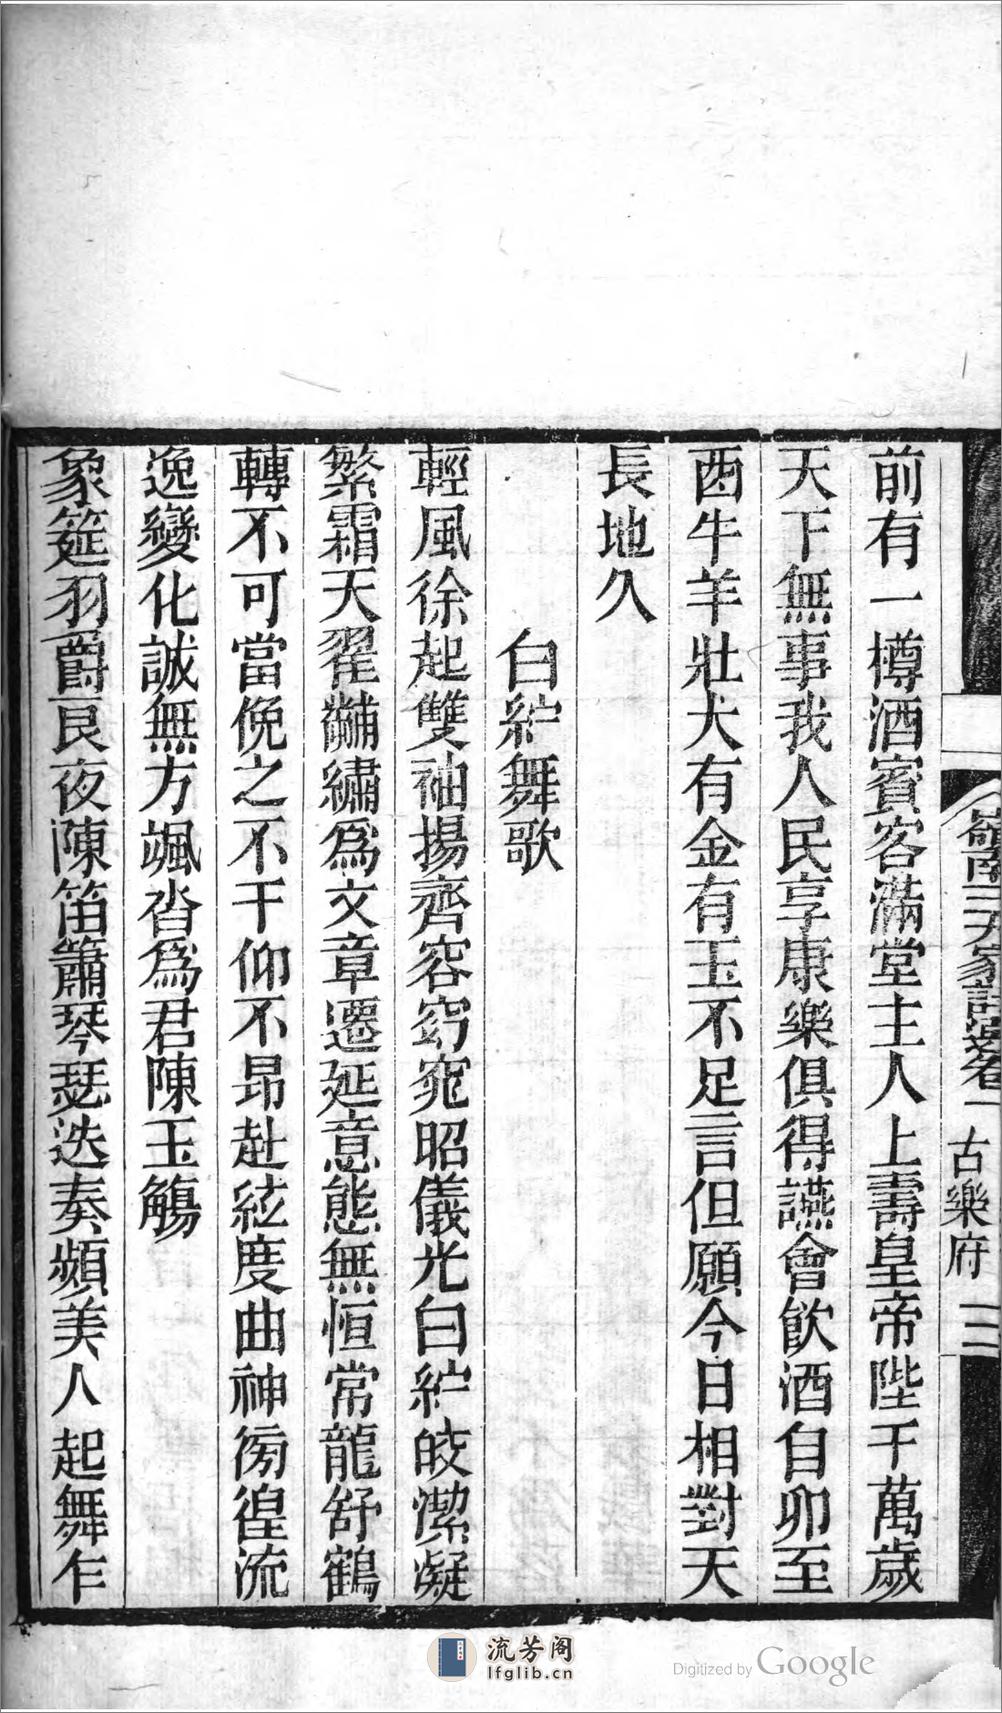 嶺南三大家詩選卷一 古樂府 三
前有一樽酒賓客滿堂主人上壽皇帝陛千萬歲
天下無事我人民享康樂俱得讌會飲酒自卯至
酉牛羊壯犬有金有玉不足言但願今日相對天
長地久
白紵舞歌
輕風徐起雙袖揚齊容窈窕昭儀光白紵皎潔凝
繁霜天翟黼繡爲文章遷延意態無恒常龍舒鶴
轉不可當俛之不千仰不昻赴絃度曲神徬徨流
逸變化誠無方颯沓爲君陳玉觴
象筵羽爵艮夜陳笛簫琴瑟迭奏頻美人起舞乍
流芳阁
lfglib.cn
Digitized by Google